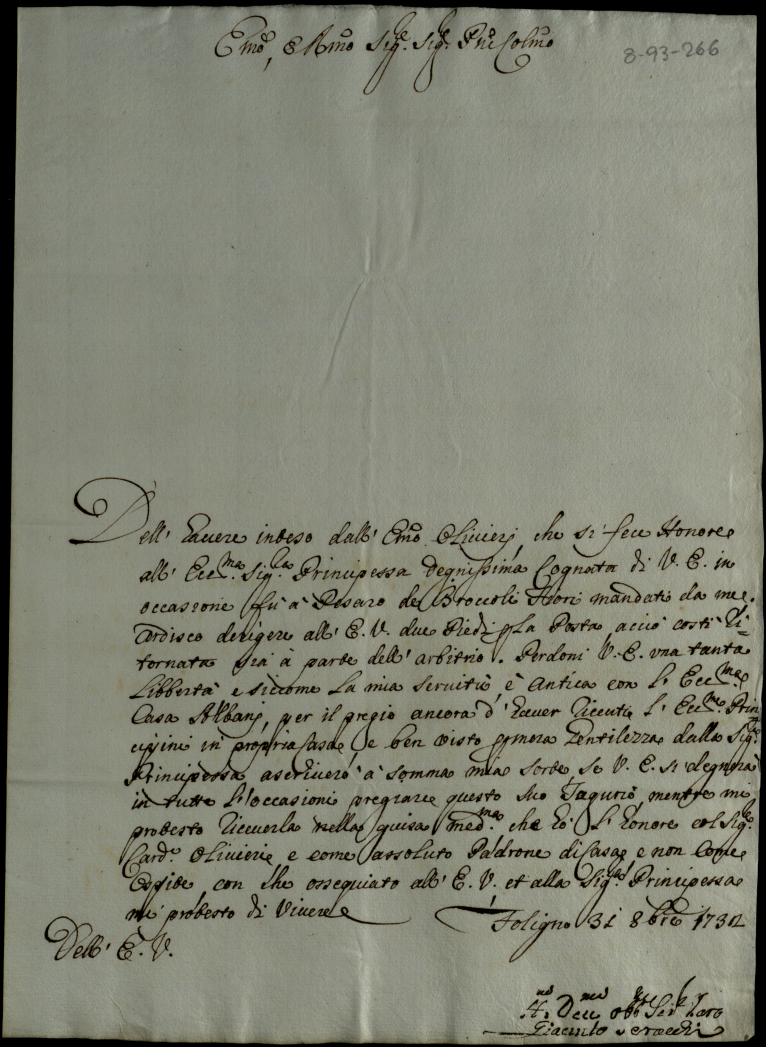 Emo, e Rmo Sig.e Sig.e Pne Colmo
8-93-266
Dell' havere inteso dall' Emo Olivieri, che si fece Honore
all' Ecc.ma Sig.ra Principessa degnissima Cognata di V. E. in
occasione fù à Pesaro de Broccoli Fiori mandati da me.
Ardisco derigere all' E. V. due Piedi La Posta, acciò costì ri=
tornata sia à parte dell' arbitrio. Perdoni V. E. una tanta
Libbertà e siccome La mia servitù, è Antica con L' Ecc.ma
Casa Albani, per il pregio ancora d' haver ricevuti L' Ecc.mi Prin
cipini in propria Casa e ben visto gentilezza dalla Sig.ra
Principessa ascriverò à somma mia sorte, se V. E. si degnerà
in tutte l'occasioni pregiare questo suo Tugurio, mentre mi
protesto riceverla nella guisa med.ma che hò L' honore col Sig.e
Card.e Olivieri e come assoluto Padrone di Casa, e non Come
Ospide, con che ossequiato all' E. V. et alla Sig.ra Principessa
mi protesto di Vivere
Foligno 31 8bre 1731
Dell' E. V.
H. Dev.mo obb.mo Ser.
Giacinto